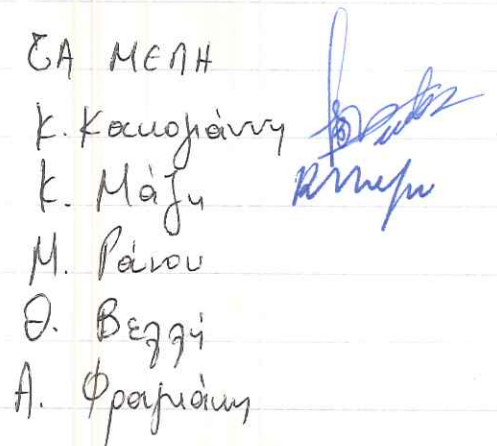 ΤΑ ΜΕΛΗ
Κ. Κακογιάννη
Κ. Μάζη
Μ. Ράνου
Θ. Βελλή
Α. Φραγκάκη